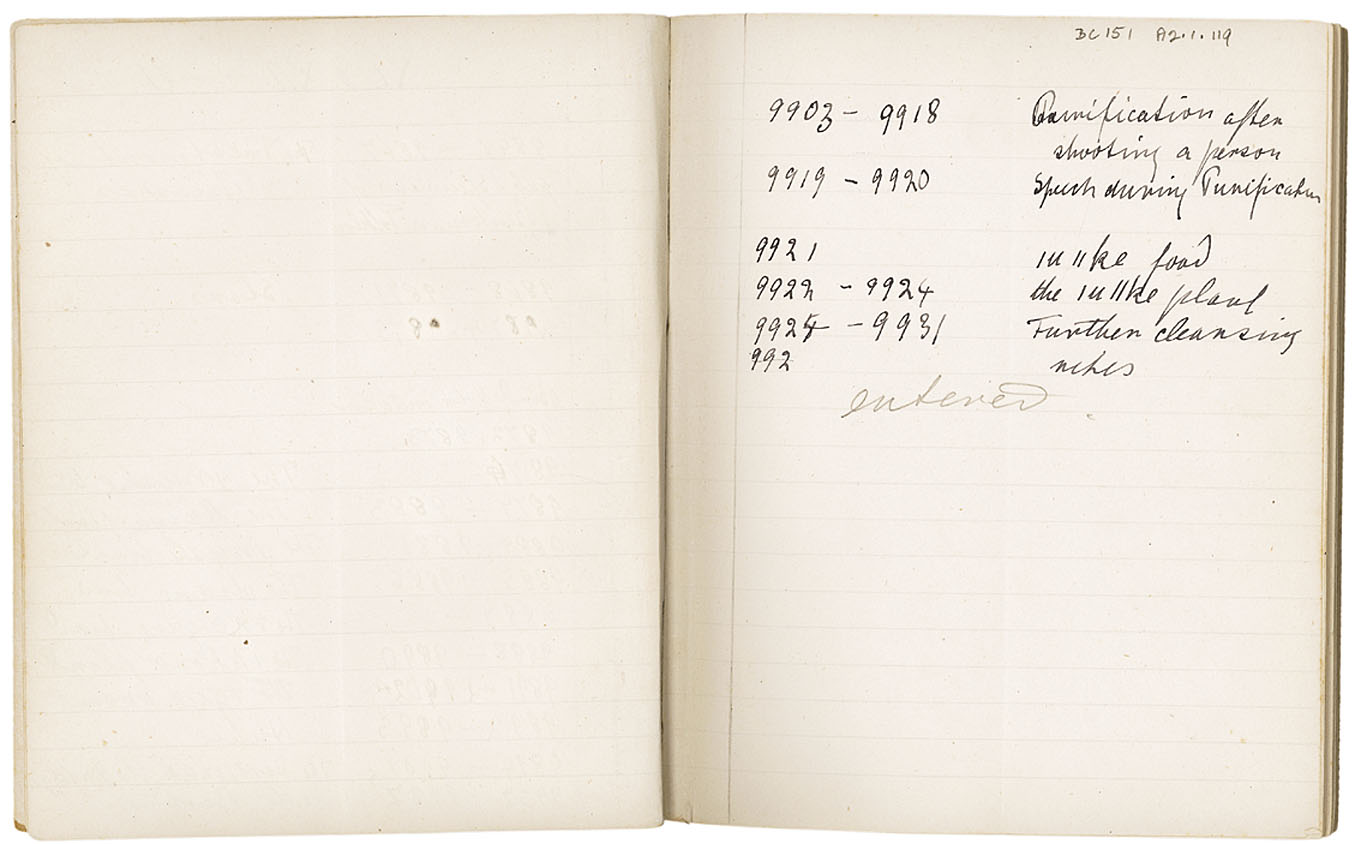 BC 151 A2.1.119
9903 – 9918 Purification after
shooting a person
9919 – 9920 Speech during Purification
9921 food
9922 – 9924 the plant
9924 – 9931 Further cleansing
992 rites
entered